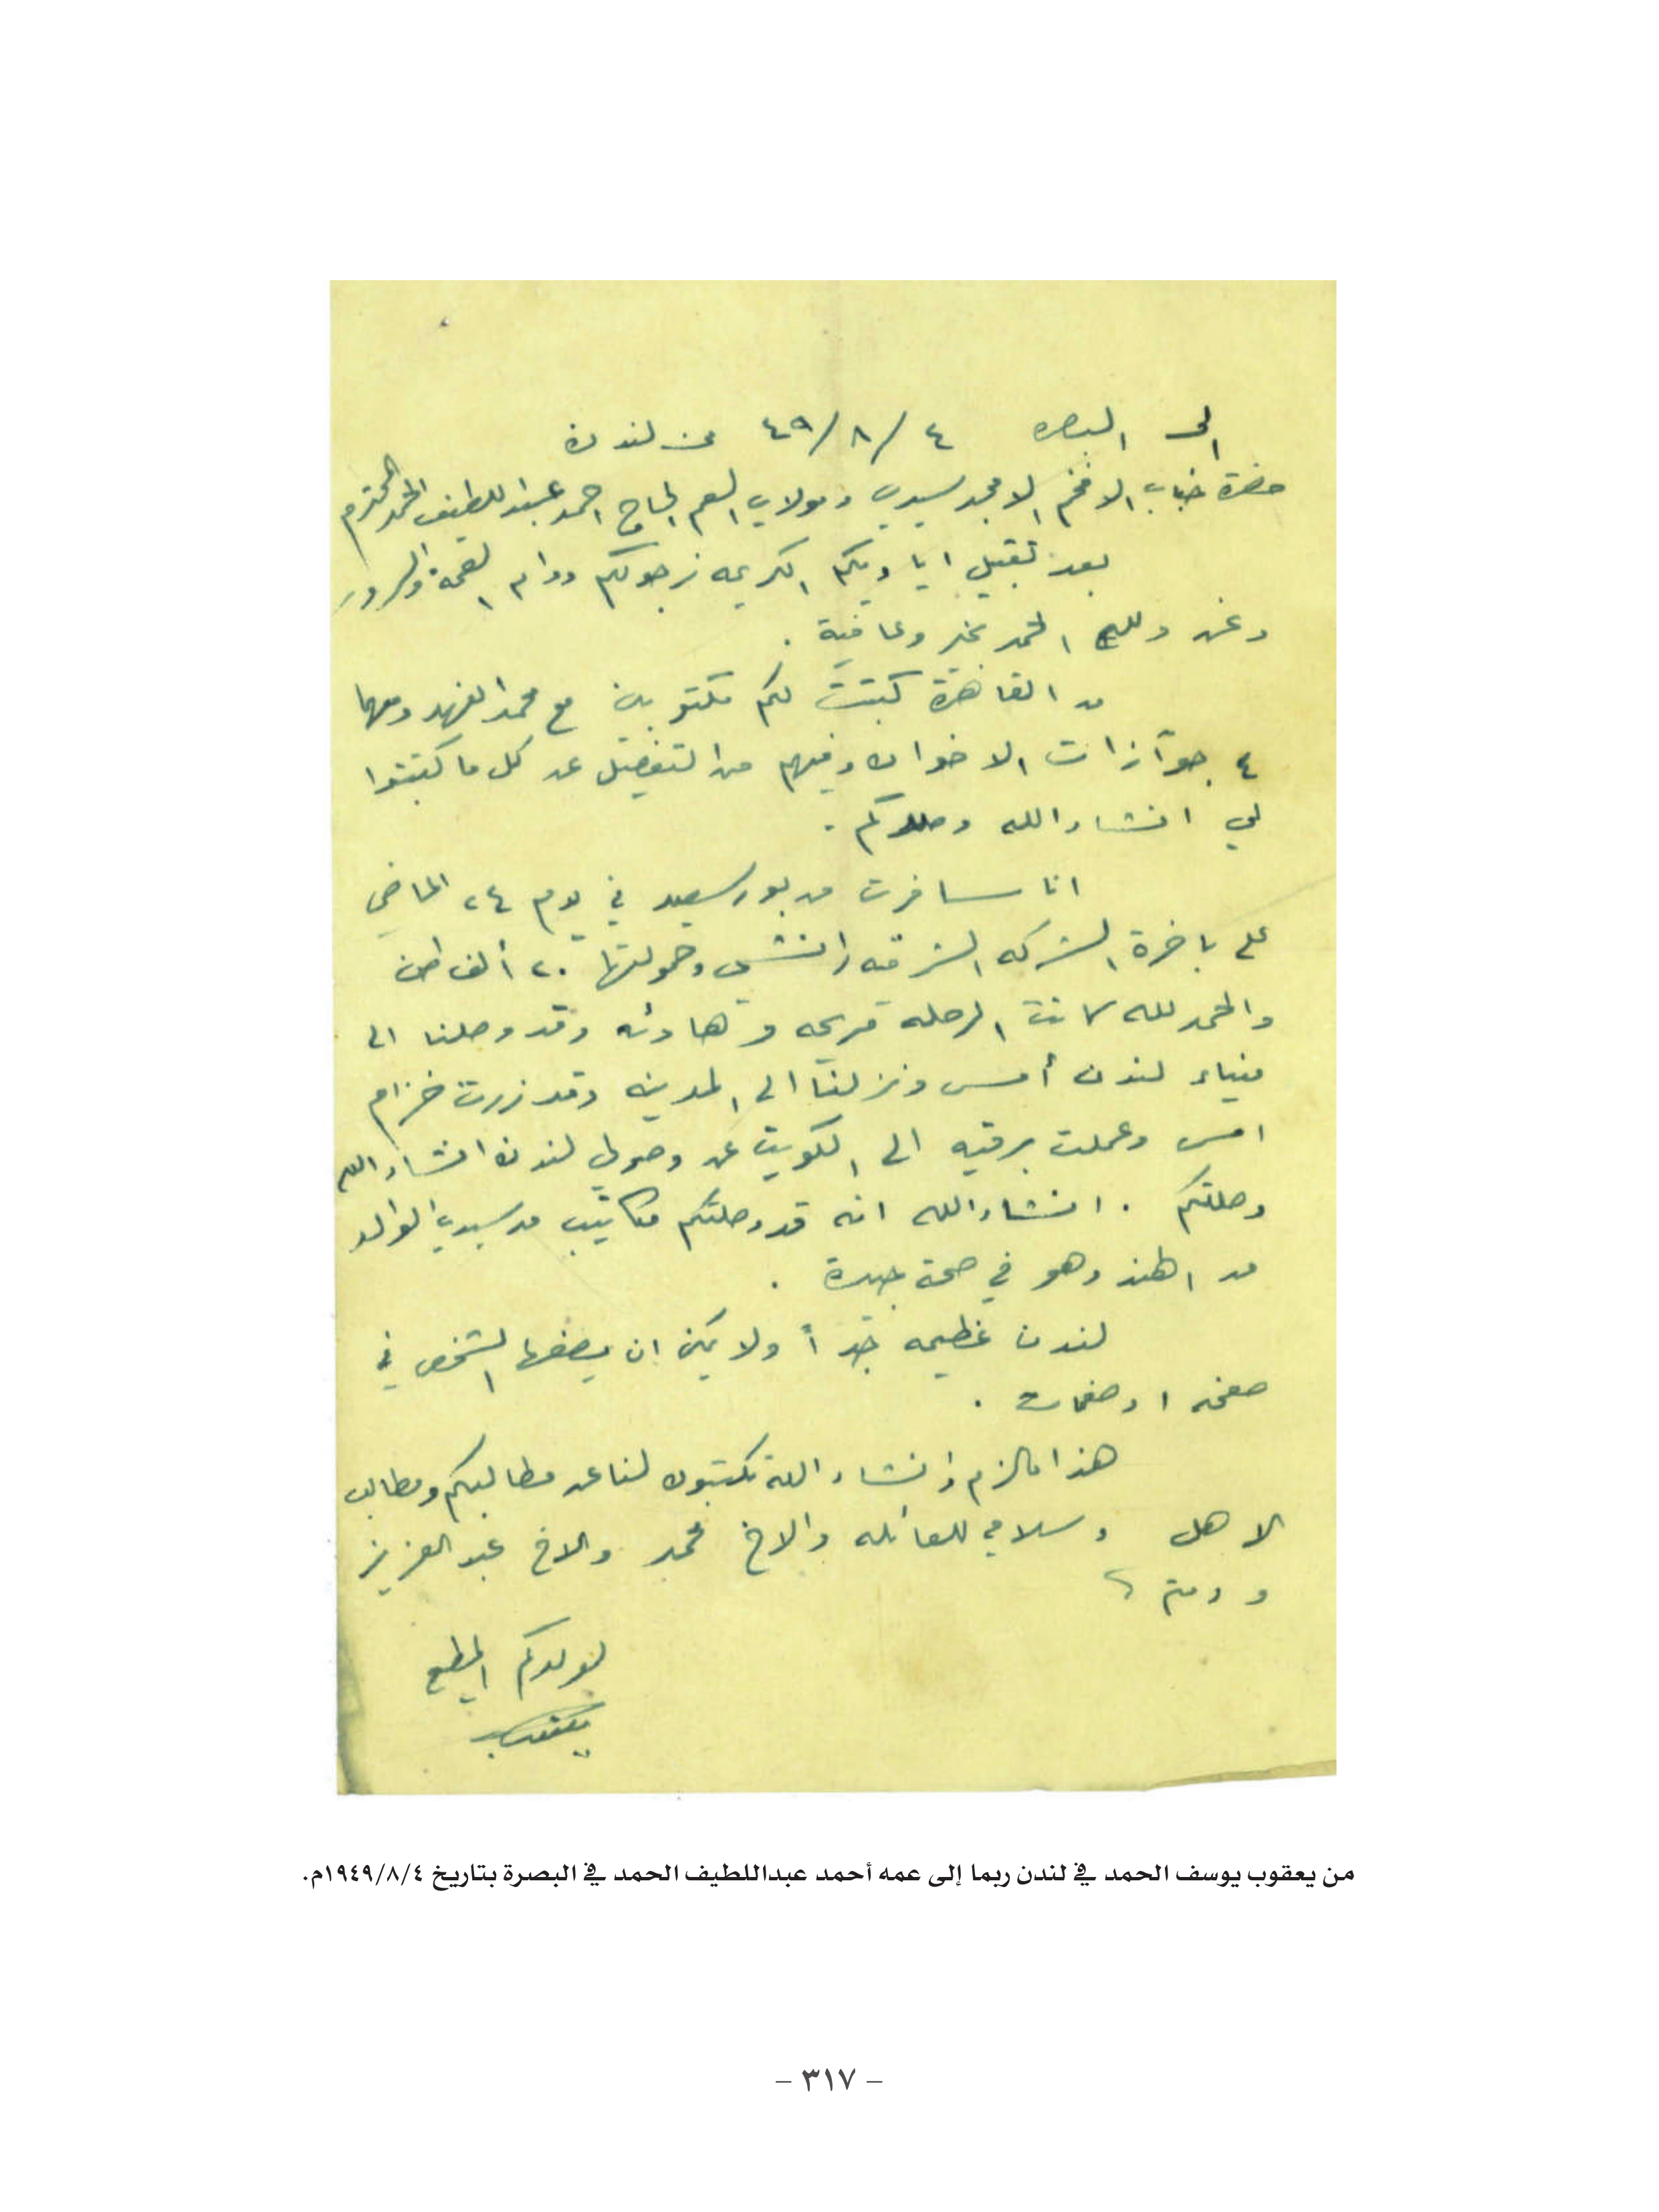 الى البصره ٤/٨/٤٩ من لندن
حضرة جناب الافخم الامجد سيدي ومولاي العم الحاج احمد عبداللطيف الحمد المحترم
بعد تقبيل اياديكم الكريمه نرجو لكم دوام الصحة والسرور
ونحن ولله الحمد بخير وعافية .
من القاهرة كتبت لكم مكتوبين مع محمد الفهد ومعهما
٤ جوازات الاخوان وفيهم من التفصيل عن كل ما كتبتوا
لي انشاء الله وصلوكم .
انا سافرت من بورسعيد في يوم ٢٤ الماضي
على باخرة الشركه الشرقيه وحمولتها ٢٠ ألف طن
والحمد لله كانت الرحله مريحه وهادئه وقد وصلنا الى
ميناء لندن أمس ونزلنا الى المدينه وقد زرت خزام
امس وعملت برقيه الى الكويت عن وصولي لندن انشاء الله
وصلتكم . انشاء الله انه قد وصلتكم مكاتيب من سيدي الوالد
من الهند وهو في صحة جيدة .
لندن عظيمه جداً ولا يمكن ان يصفها الشخص في
صفحه او صفحات .
هذا مالزم وانشاء الله تكتبون لنا عن مطالبكم ومطالب
الاهل وسلامي للعائله والاخ محمد والاخ عبدالعزيز
ودمتم
لولدكم المطيع
يعقوب
من يعقوب يوسف الحمد في لندن ربما إلى عمه أحمد عبداللطيف الحمد في البصرة بتاريخ ١٩٤٩/٨/٤م.
– ٣١٧ –